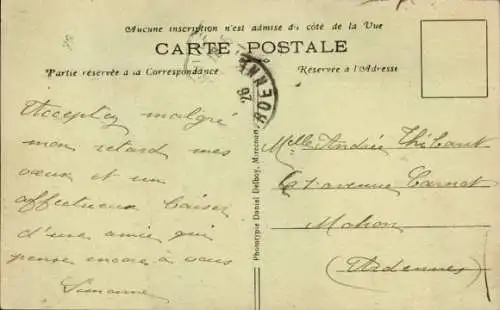 Aucune inscription n'est admise du côté de la Vue
CARTE POSTALE
Partie réservée à la Correspondance
Réservée à l'Adresse
Acceptez malgré
mon retard mes
vœux et un
affectueux baiser
d'une amie qui
pense encore à vous
Simonne
Phototypie Daniel Delboy, Mirecourt
Melle Andrée Thibaut
7 avenue Carnot
Mohon
(Ardennes)